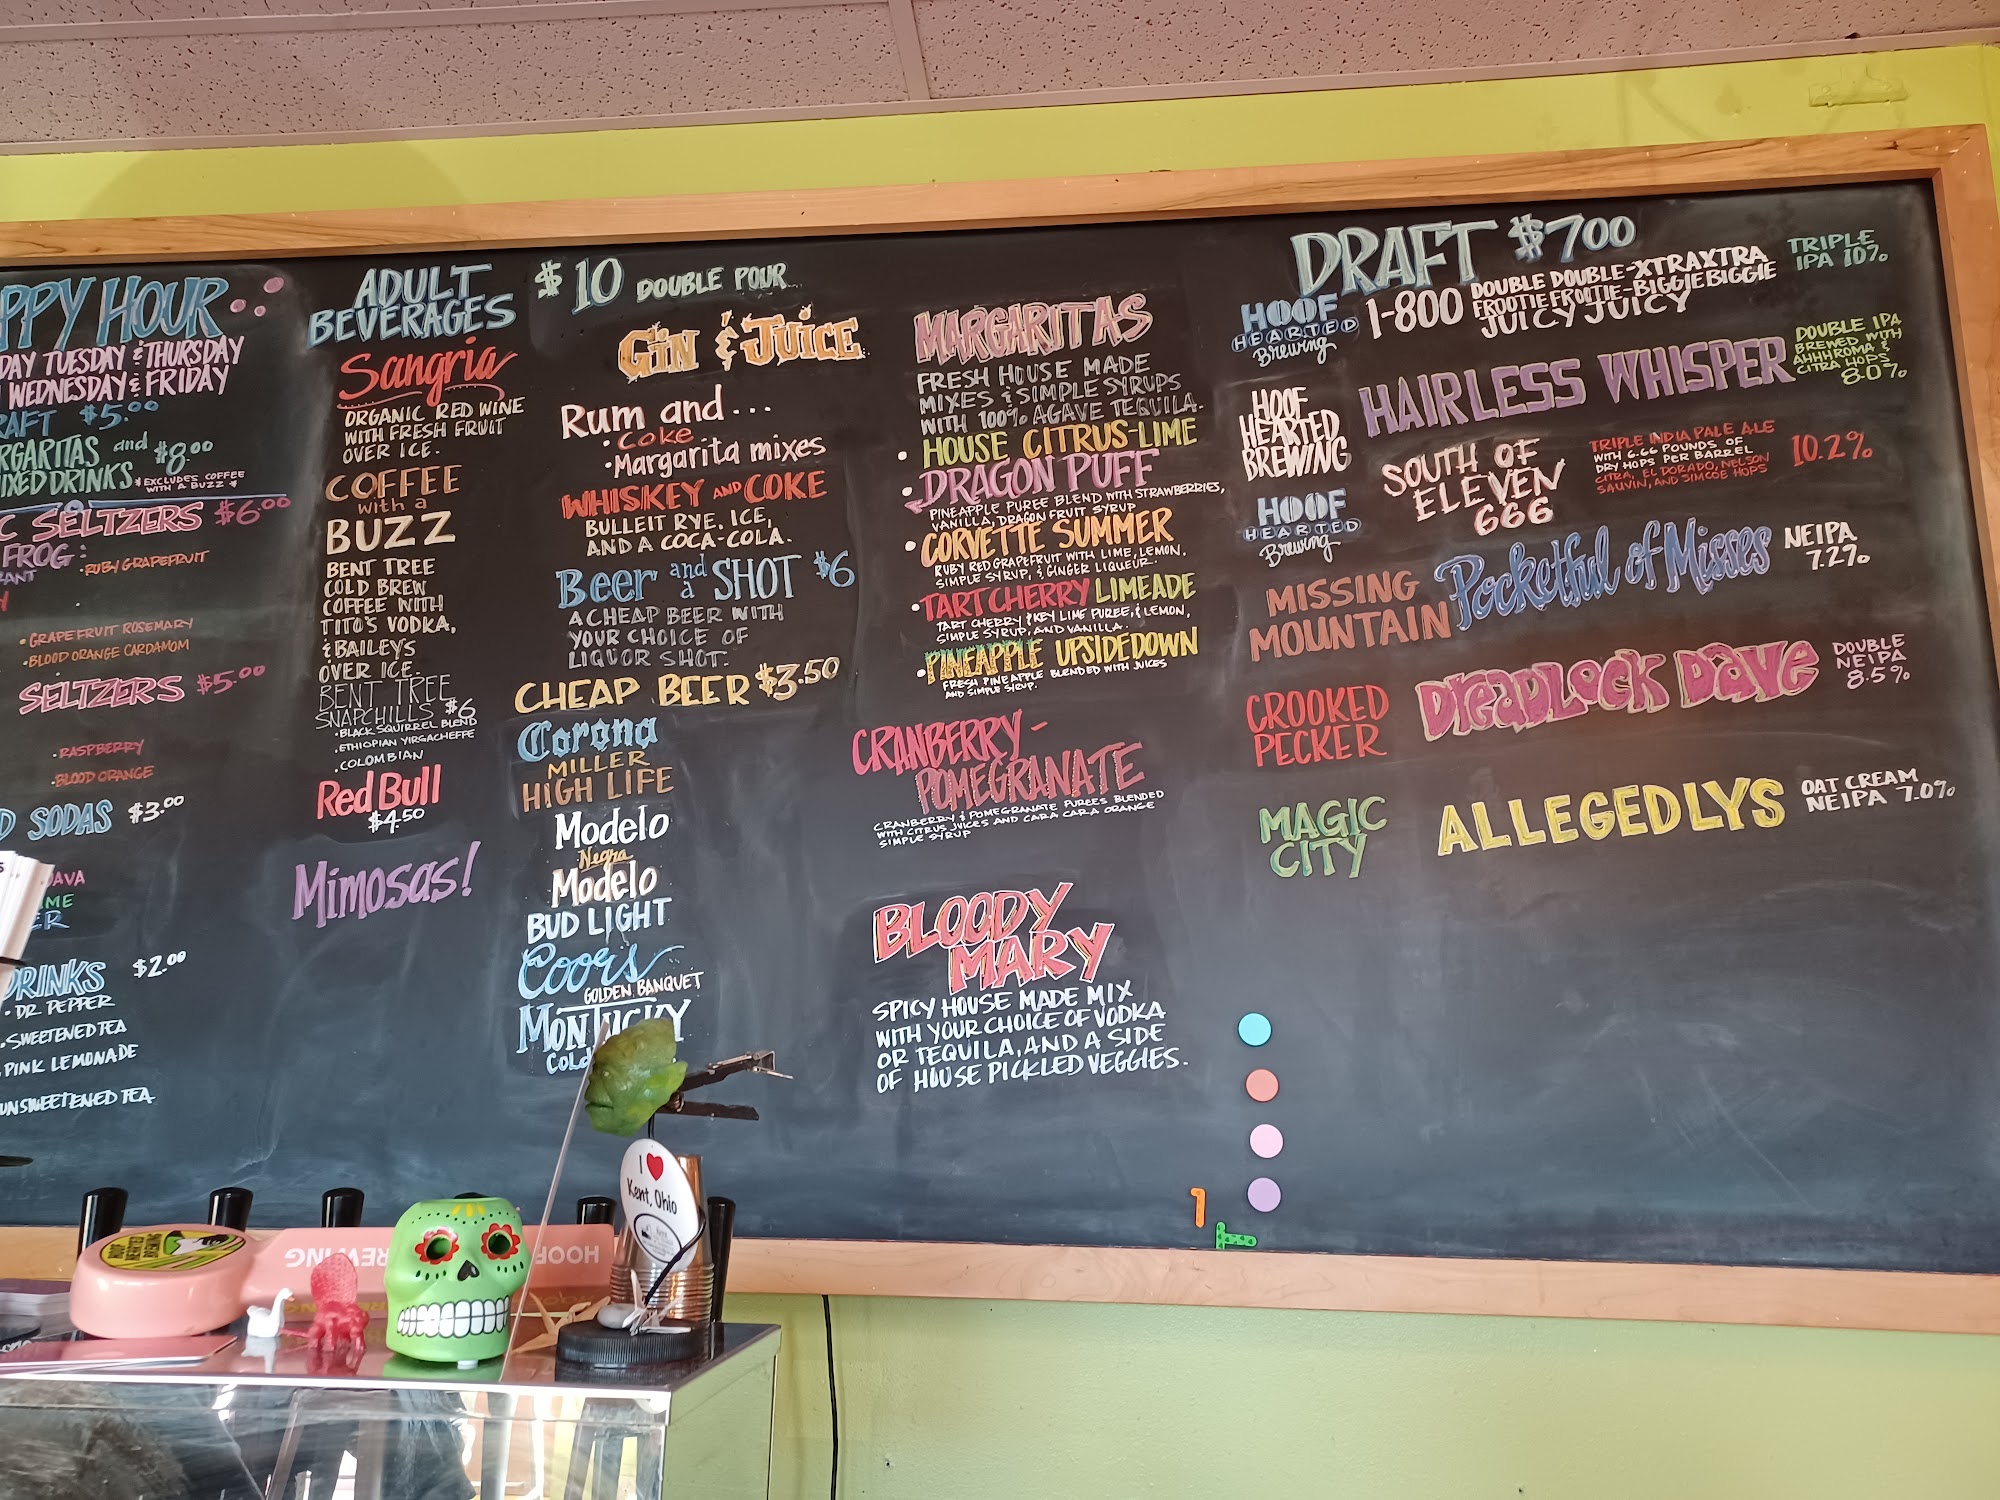 PPY HOUR
DAY TUESDAY & THURSDAY
WEDNESDAY & FRIDAY
RAFT $5.00
RGARITAS and $8.00
IXED DRINKS * EXCLUDES COFFEE
WITH A BUZZ *
C SELTZERS $6.00
FROG:
RANT
• RUBY GRAPEFRUIT
• GRAPEFRUIT ROSEMARY
• BLOOD ORANGE CARDAMOM
SELTZERS $5.00
• RASPBERRY
• BLOOD ORANGE
D SODAS $3.00
AVA
IME
ER
DRINKS $2.00
• DR. PEPPER
• SWEETENED TEA
PINK LEMONADE
UNSWEETENED TEA
ADULT
BEVERAGES
Sangria
ORGANIC RED WINE
WITH FRESH FRUIT
OVER ICE.
COFFEE
with a
BUZZ
BENT TREE
COLD BREW
COFFEE WITH
TITO'S VODKA,
& BAILEYS
OVER ICE.
BENT TREE
SNAPCHILLS $6
• BLACK SQUIRREL BLEND
• ETHIOPIAN YIRGACHEFFE
• COLOMBIAN
Red Bull
$4.50
Mimosas!
$10 DOUBLE POUR
GIN & JUICE
Rum and...
• Coke
• Margarita mixes
WHISKEY AND COKE
BULLEIT RYE, ICE,
AND A COCA-COLA.
Beer and a SHOT $6
A CHEAP BEER WITH
YOUR CHOICE OF
LIQUOR SHOT.
CHEAP BEER $3.50
Corona
MILLER
HIGH LIFE
Modelo
Negra
Modelo
BUD LIGHT
Coors
GOLDEN BANQUET
MONTUCKY
COLD
MARGARITAS
FRESH HOUSE MADE
MIXES & SIMPLE SYRUPS
WITH 100% AGAVE TEQUILA.
• HOUSE CITRUS-LIME
• DRAGON PUFF
PINEAPPLE PUREE BLEND WITH STRAWBERRIES,
VANILLA, DRAGON FRUIT SYRUP
• CORVETTE SUMMER
RUBY RED GRAPEFRUIT WITH LIME, LEMON,
SIMPLE SYRUP, & GINGER LIQUEUR.
• TART CHERRY LIMEADE
TART CHERRY & KEY LIME PUREE, & LEMON,
SIMPLE SYRUP, AND VANILLA.
• PINEAPPLE UPSIDEDOWN
FRESH PINEAPPLE BLENDED WITH JUICES
AND SIMPLE SYRUP.
CRANBERRY-
POMEGRANATE
CRANBERRY & POMEGRANATE PUREES BLENDED
WITH CITRUS JUICES AND CARA CARA ORANGE
SIMPLE SYRUP
BLOODY
MARY
SPICY HOUSE MADE MIX
WITH YOUR CHOICE OF VODKA
OR TEQUILA, AND A SIDE
OF HOUSE PICKLED VEGGIES.
DRAFT $7.00
HOOF
HEARTED
Brewing
1-800 DOUBLE DOUBLE-XTRAXTRA
FROOTIE FROOTIE-BIGGIE BIGGIE
JUICY JUICY
TRIPLE
IPA 10%
HOOF
HEARTED
BREWING
HAIRLESS WHISPER
DOUBLE IPA
BREWED WITH
AHHHROMA &
CITRA HOPS
8.0%
HOOF
HEARTED
Brewing
SOUTH OF
ELEVEN
666
TRIPLE INDIA PALE ALE
WITH 6.66 POUNDS OF
DRY HOPS PER BARREL
CITRA, EL DORADO, NELSON
SAUVIN, AND SIMCOE HOPS
10.2%
MISSING
MOUNTAIN
Pocketful of Misses
NEIPA
7.2%
CROOKED
PECKER
DREADLOCK DAVE
DOUBLE
NEIPA
8.5%
MAGIC
CITY
ALLEGEDLYS
OAT CREAM
NEIPA 7.0%
I ♥
Kent, Ohio
HOOF HEARTED BREWING
HOOF
REWING
1
T